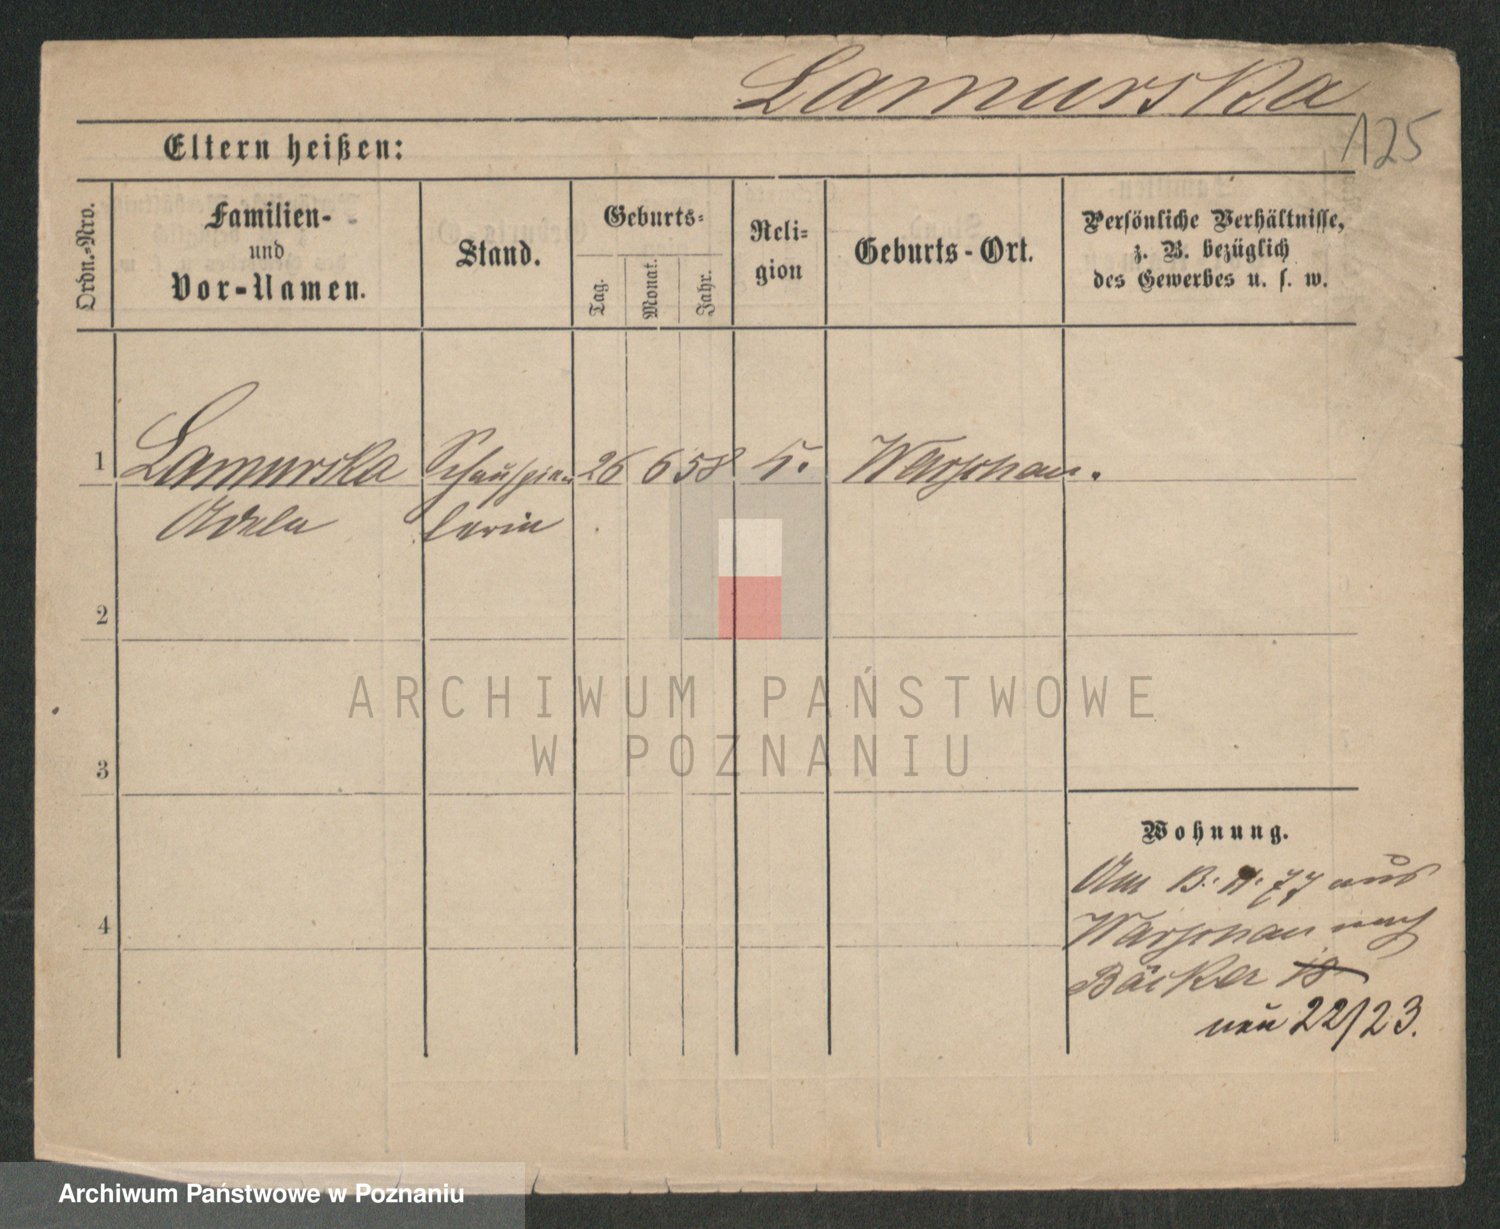 Lamurska
125
Eltern heißen:
Ordn.-Nro.
Familien-
und
Vor-Namen.
Stand.
Geburts-
Tag.
Monat.
Jahr.
Reli-
gion
Geburts-Ort.
Persönliche Verhältnisse,
z. B. bezüglich
des Gewerbes u. s. w.
1 Lamurska Schauspie- 26 6 58 k. Warschau.
Adela lerin
2
ARCHIWUM PAŃSTWOWE
W POZNANIU
3
4
Wohnung.
Am 77 aus
Warschau nach
Bäcker 18
neu 22/23.
Archiwum Państwowe w Poznaniu